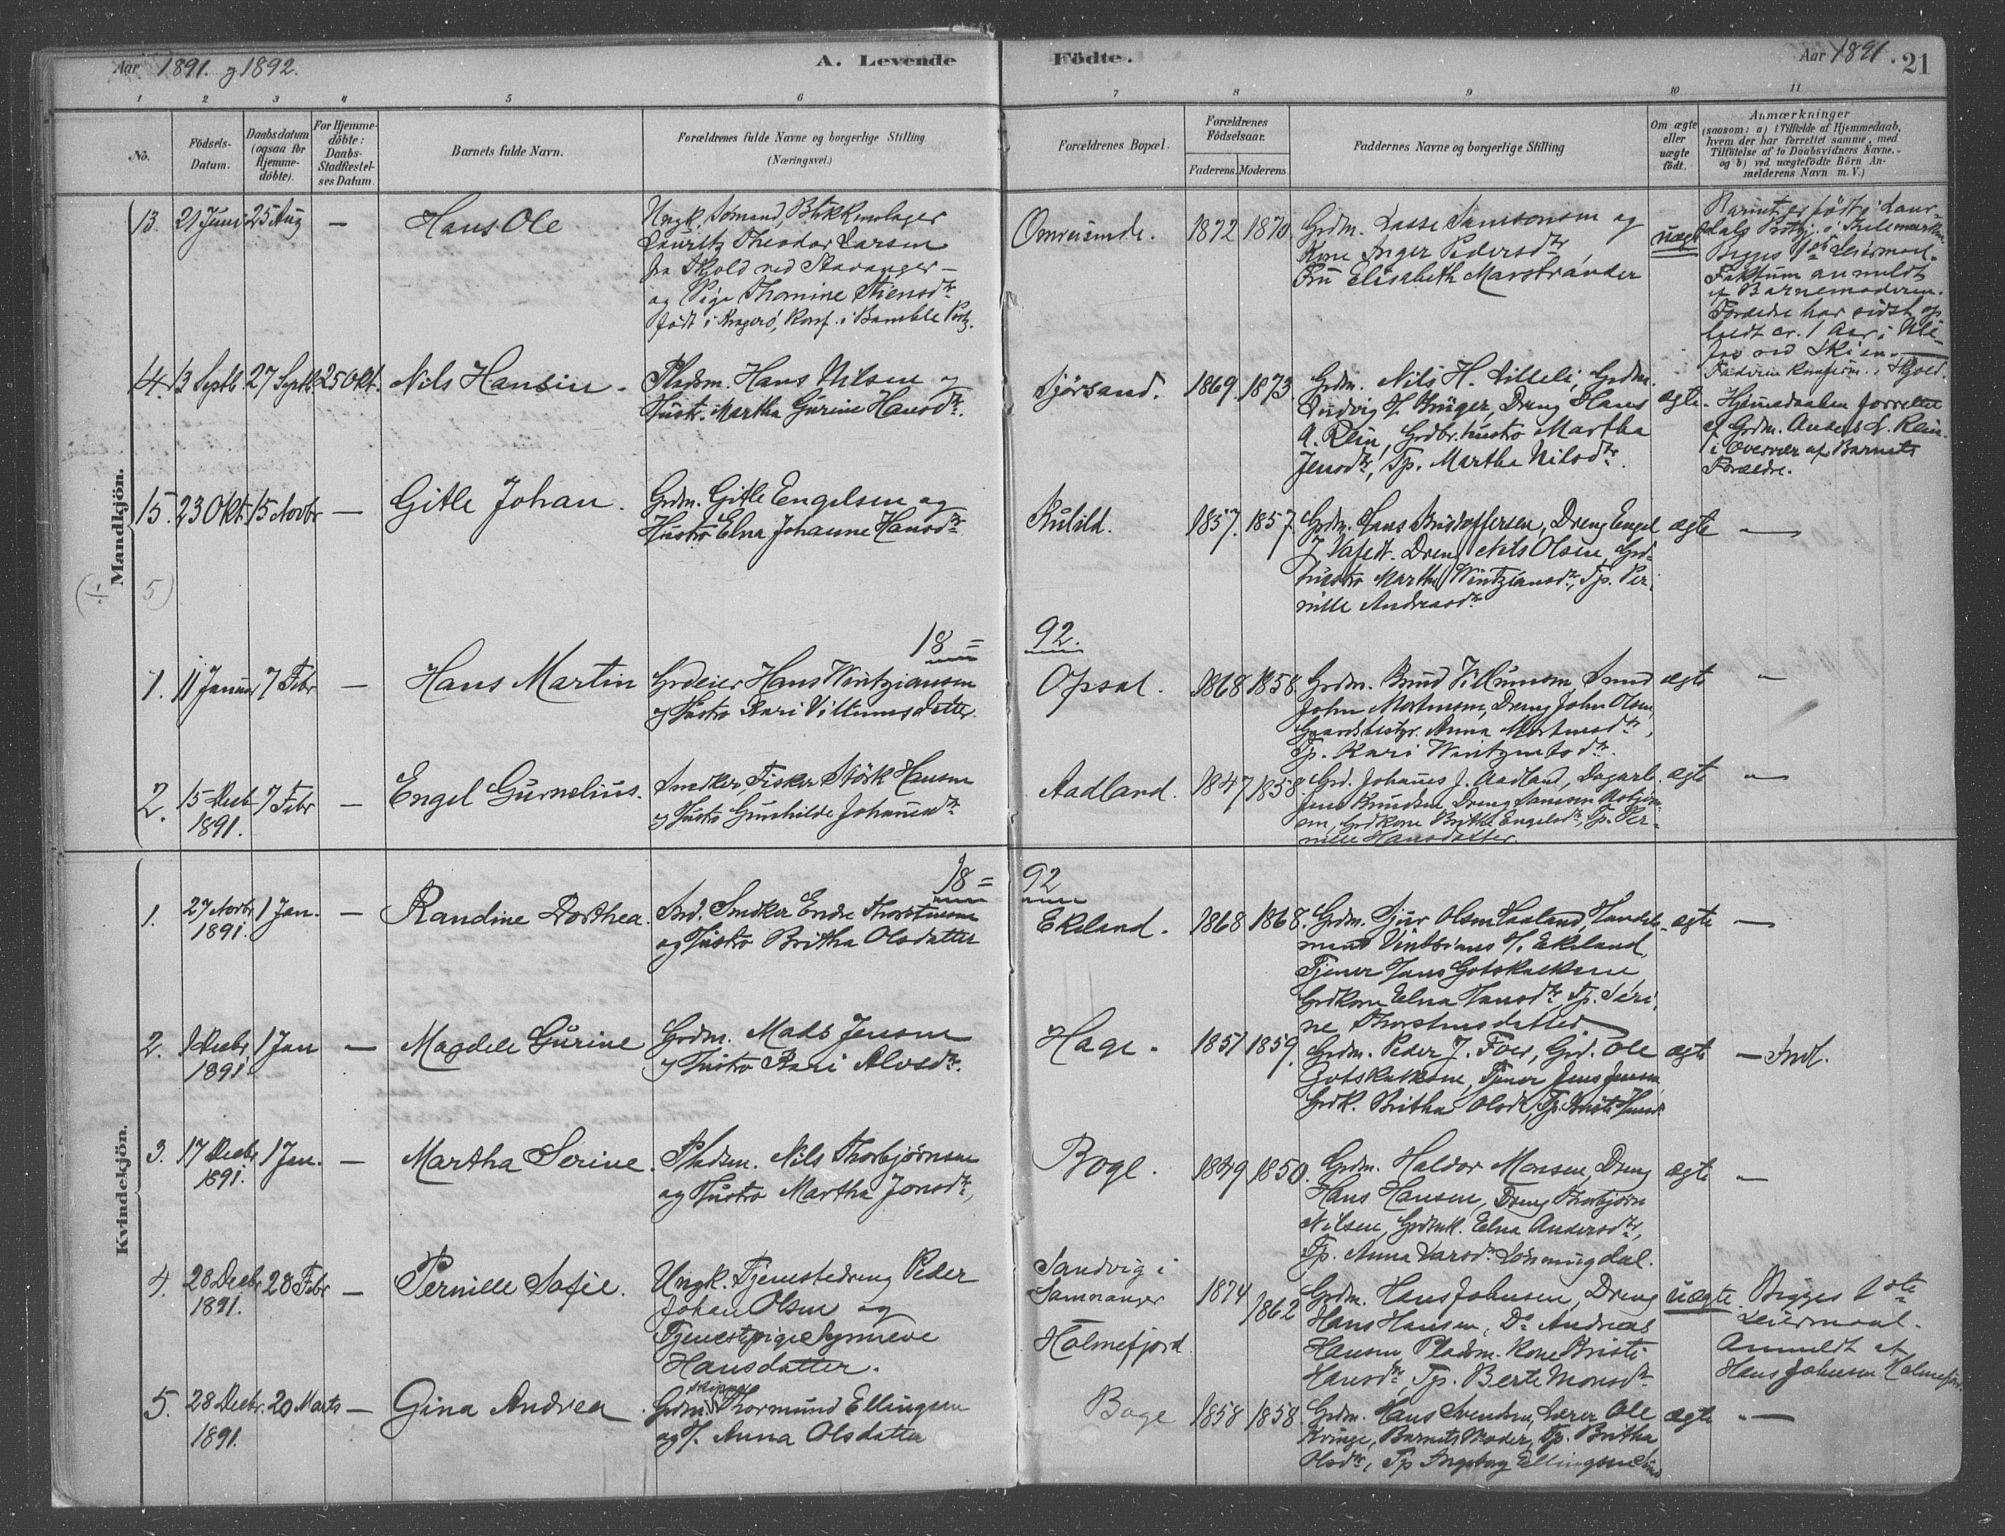 Aar 1891. og 1892.
A. Levende
Födte.
Aar 1891.
21
1 2 3 4 5 6 7 8 9 10 11
No.
Födsels-
Datum.
Daabsdatum
(ogsaa for
Hjemme-
döbte).
For Hjemme-
döbte:
Daabs-
Stadfæstel-
ses Datum.
Barnets fulde Navn.
Forældrenes fulde Navne og borgerlige Stilling
(Næringsvei.)
Forældrenes Bopæl.
Forældrenes
Födselsaar.
Faderens. Moderens.
Faddernes Navne og borgerlige Stilling
Om ægte
eller
uægte
födt.
Anmærkninger
(saasom: a) i Tilfælde af Hjemmedaab,
hvem der har forrettet samme, med
Tilföielse af to Daabsvidners Navne.-
og b) ved uægtefödte Börn An-
melderens Navn m. V.)
Mandkjön.
13. 21 Juni 25 Aug — Hans Ole
Ungk. Sömand,
Lauritz Theodor Larsen
fra Skjold ved Stavanger —
og Pige Thomine Stiensdtr
födt i Kragerö, Konf. i Bamble
1872 1870
Grdm. Lasse Samsonsen og
Kone Inger Pedersdtr
Fru Elisabeth Marstrander
uægte
Barnet er födt i Laur-
dals
Begges 1ste Leiermaal.
Faktum anmeldt
af Barnemoderen.
Forældre har sidst op-
holdt cr. 1 Aar i Ule-
fos ved Skien.
Faderen konfirm. i Skjold.
14. 13 Septb. 27 Septb. 25 Okt. Nils Hansin.
Pladsm. Hans Nilsen og
Hustr. Martha Gurine Hansdtr.
Sjörsand. 1869. 1873.
Grdm. Nils H. Lilleli, Grdm.
Ludvig H. Krüger, Dreng Hans
A. Rein, Grdbr. hustro Martha
Jensdtr, Tp. Martha Nilsdtr.
ægte.
Hjemmedaaben forrettet
af Grdm. Anders L. Rein
i Overvær af Barnets
Forældre.
15. 23 Okt. 15 Novbr — Gitle Johan.
Grdm. Gitle Engelsen og
Hustro Elna Johanne Hansdtr
1857. 1857
Grdm. Hans Kristoffersen, Dreng Engel
Dreng Nils Olsen, Grd-
hustro Martha Wintziansdtr, Tp. Per-
nille Andreasdtr
ægte —
5)
18=92.
1. 11 Januar 7 Febr — Hans Martin
Grdeier Hans Wintziansen
og Hustro Kari Villumsdatter.
Opsal. 1868 1858.
Grdm. Knud Villumsen,
John Mortensen, Dreng John Olsen,
Gaardbestyr. Anna Mortensdtr,
Tp. Kari
ægte —
2. 15 Decb. 1891. 7 Febr — Engel Gurnelius.
Snedker, Fisker Störk Hansen
og Hustro Gunhilde Johannesdtr
Aadland. 1847 1858.
Grd. Johannes J. Aadland, Dagarb.
Jens Knudsen, Dreng Samson
sen, Grdkone Brithe Engelsdtr, Tp. Per-
nille Hansdatter.
ægte —
Kvindekjön.
18=92
1. 27 Novbr. 1891. 1 Jan. — Randine Dorthea.
Snedker Endre Thorstensen
og Hustro Britha Olsdatter
Ekeland. 1868 1868.
Grdm. Sjur Olsen Haaland, Handels-
mand Vintsians H. Ekeland,
Tjener Hans Gotskalksen
Grdkone Elna Hansdtr, Tp. Seri-
ne Thorstensdatter.
ægte —
2. 9 Decbr. 1891. 1 Jan — Magdele Gurine
Grdm. Mads Jensen
og Hustro Kari Alvsdtr.
Hage. 1851 1859.
Grdm. Peder J. Grd. Ole
Gotskalksen, Tjener Jens Jensen
Grdk. Britha Olsdtr, Tp.
ægte —
3. 17 Decbr. 1891. 1 Jan. — Martha Serine.
Pladsm. Nils Thorbjörnsen
og Hustro Martha Jonsdtr,
Boge. 1849 1850.
Grdm. Haldor Monsen, Dreng
Hans Hansen, Dreng Thorbjörn
Nilsen, Elna Andersdtr,
Tp. Anna
ægte —
4. 28 Decbr. 1891. 28 Febr — Pernille Sofie.
Ungk. Tjenestedreng Peder
Johan Olsen og
Tjenestepige Synneve
Hansdatter.
Sandvig i
Samnanger
Holmefjord
1874 1862
Grdm. Hans Johnsen, Dreng
Hans Hansen, Do Andreas
Hansen Pladsm. Kone Kristi
Hansdtr, Tp. Berte Monsdtr
uægte.
Begges 1ste
Leiermaal.
Anmeldt af
Hans Johnsen Holmefjord
5. 28 Decbr. 1891. 20 Marts — Gina Andrea
Grdm. Skipper Thormund Ellingsen
og H. Anna Olsdatter
Boge 1858 1858.
Grdm. Hans Svendsen, Lærer Ole
Kvinge, Barnets Moder, Tp. Britha
Olsdtr, Tp Ingeborg Ellingsen
ægte —